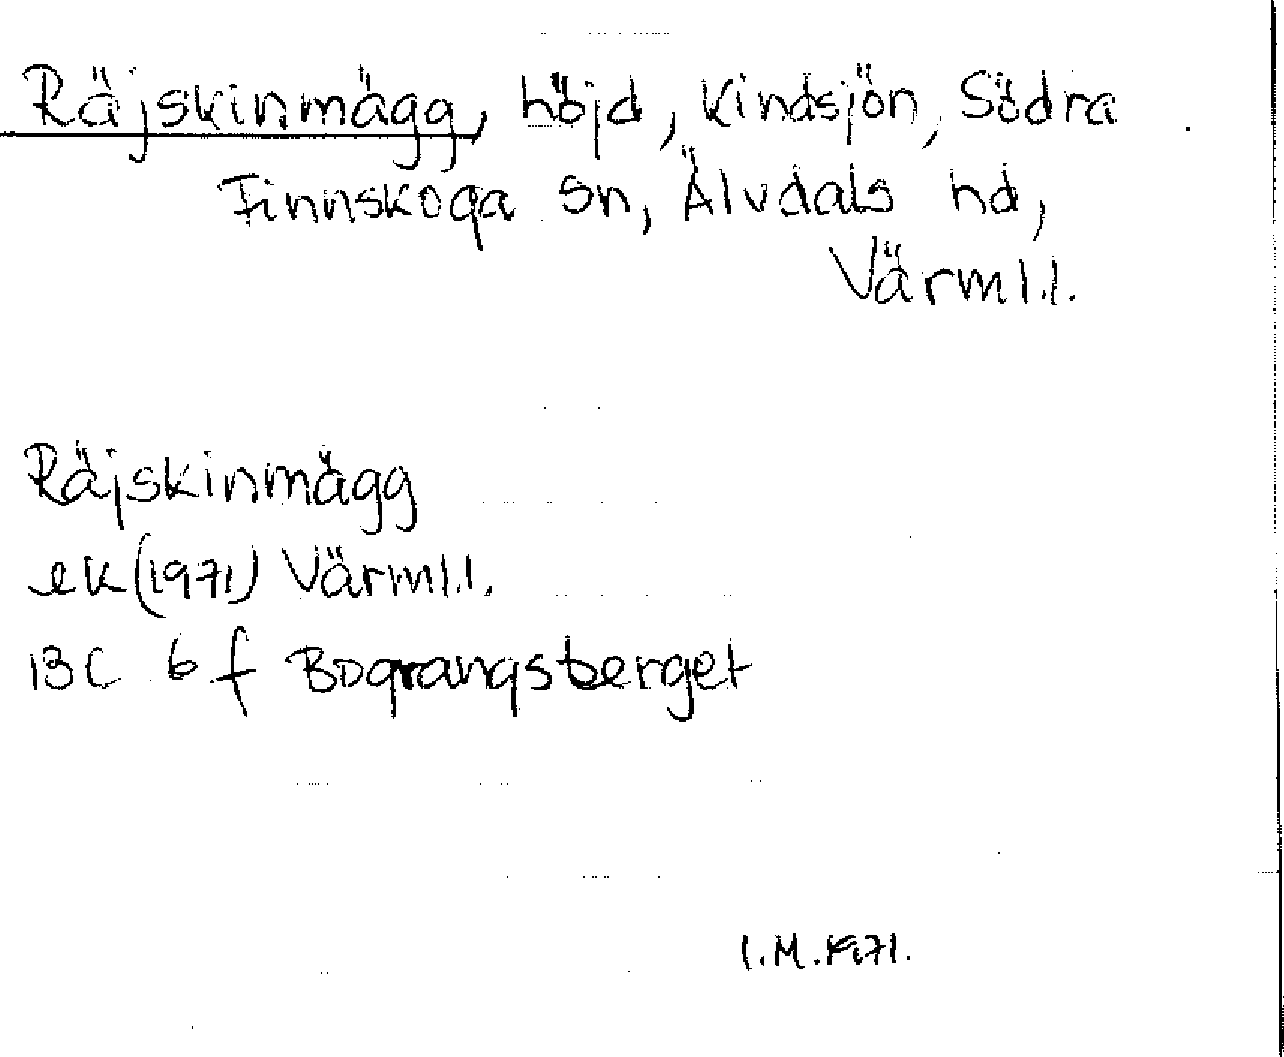 Räjskinmägg, höjd, Kindsjön, Södra
Finnskoga sn, Älvdals hd,
Värml.l.
Räjskinmägg
ek (1971) Värml.l.
13C 6f Bograngsberget
I.M. 1971.